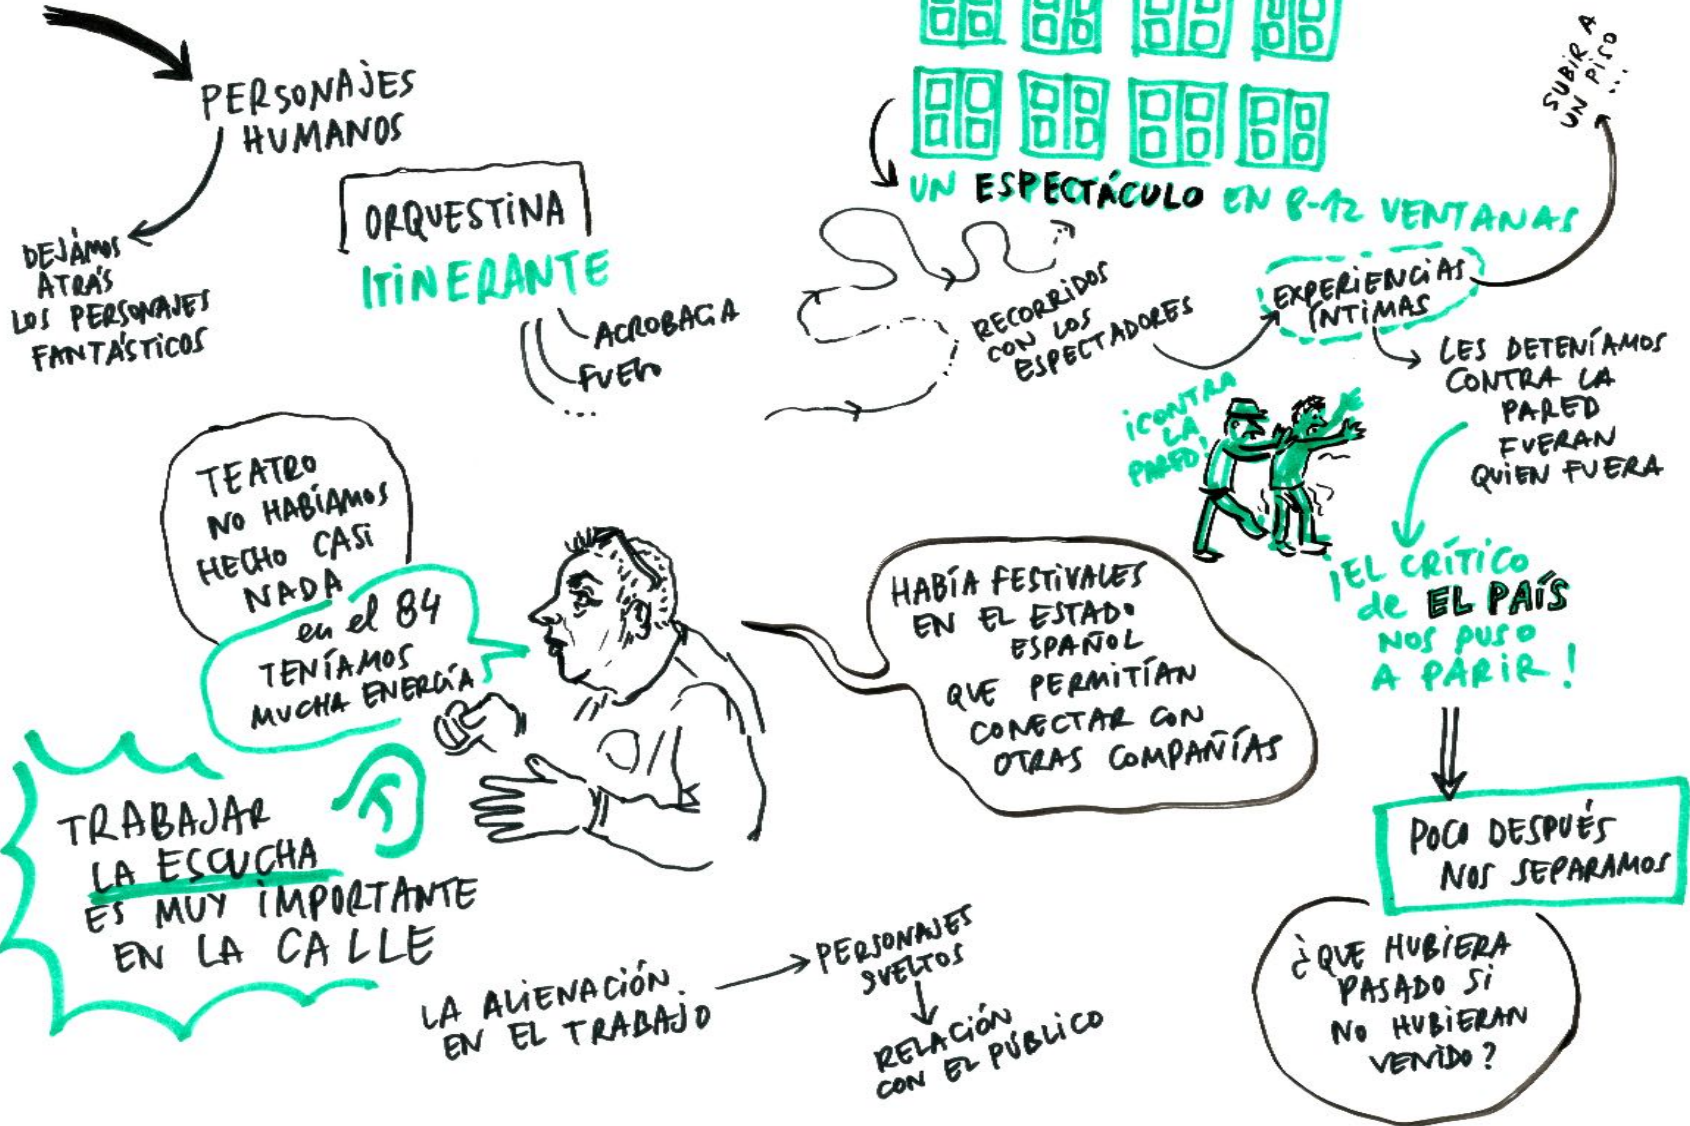 PERSONAJES
HUMANOS
DEJÁMOS
ATRÁS
LOS PERSONAJES
FANTÁSTICOS
ORQUESTINA
ITINERANTE
ACROBACIA
FUEGO
...
UN ESPECTÁCULO EN 8-12 VENTANAS
RECORRIDOS
CON LOS
ESPECTADORES
EXPERIENCIAS
ÍNTIMAS
SUBIR A
UN PISO
...
LES DETENÍAMOS
CONTRA LA
PARED
FUERAN
QUIEN FUERA
¡CONTRA
LA
PARED!
¡EL CRÍTICO
de EL PAÍS
NOS PUSO
A PARIR!
POCO DESPUÉS
NOS SEPARAMOS
¿QUE HUBIERA
PASADO SI
NO HUBIERAN
VENIDO?
TEATRO
NO HABÍAMOS
HECHO CASI
NADA
en el 84
TENÍAMOS
MUCHA ENERGÍA
HABÍA FESTIVALES
EN EL ESTADO
ESPAÑOL
QUE PERMITÍAN
CONECTAR CON
OTRAS COMPAÑÍAS
TRABAJAR
LA ESCUCHA
ES MUY IMPORTANTE
EN LA CALLE
LA ALIENACIÓN
EN EL TRABAJO
PERSONAJES
SUELTOS
RELACIÓN
CON EL PÚBLICO